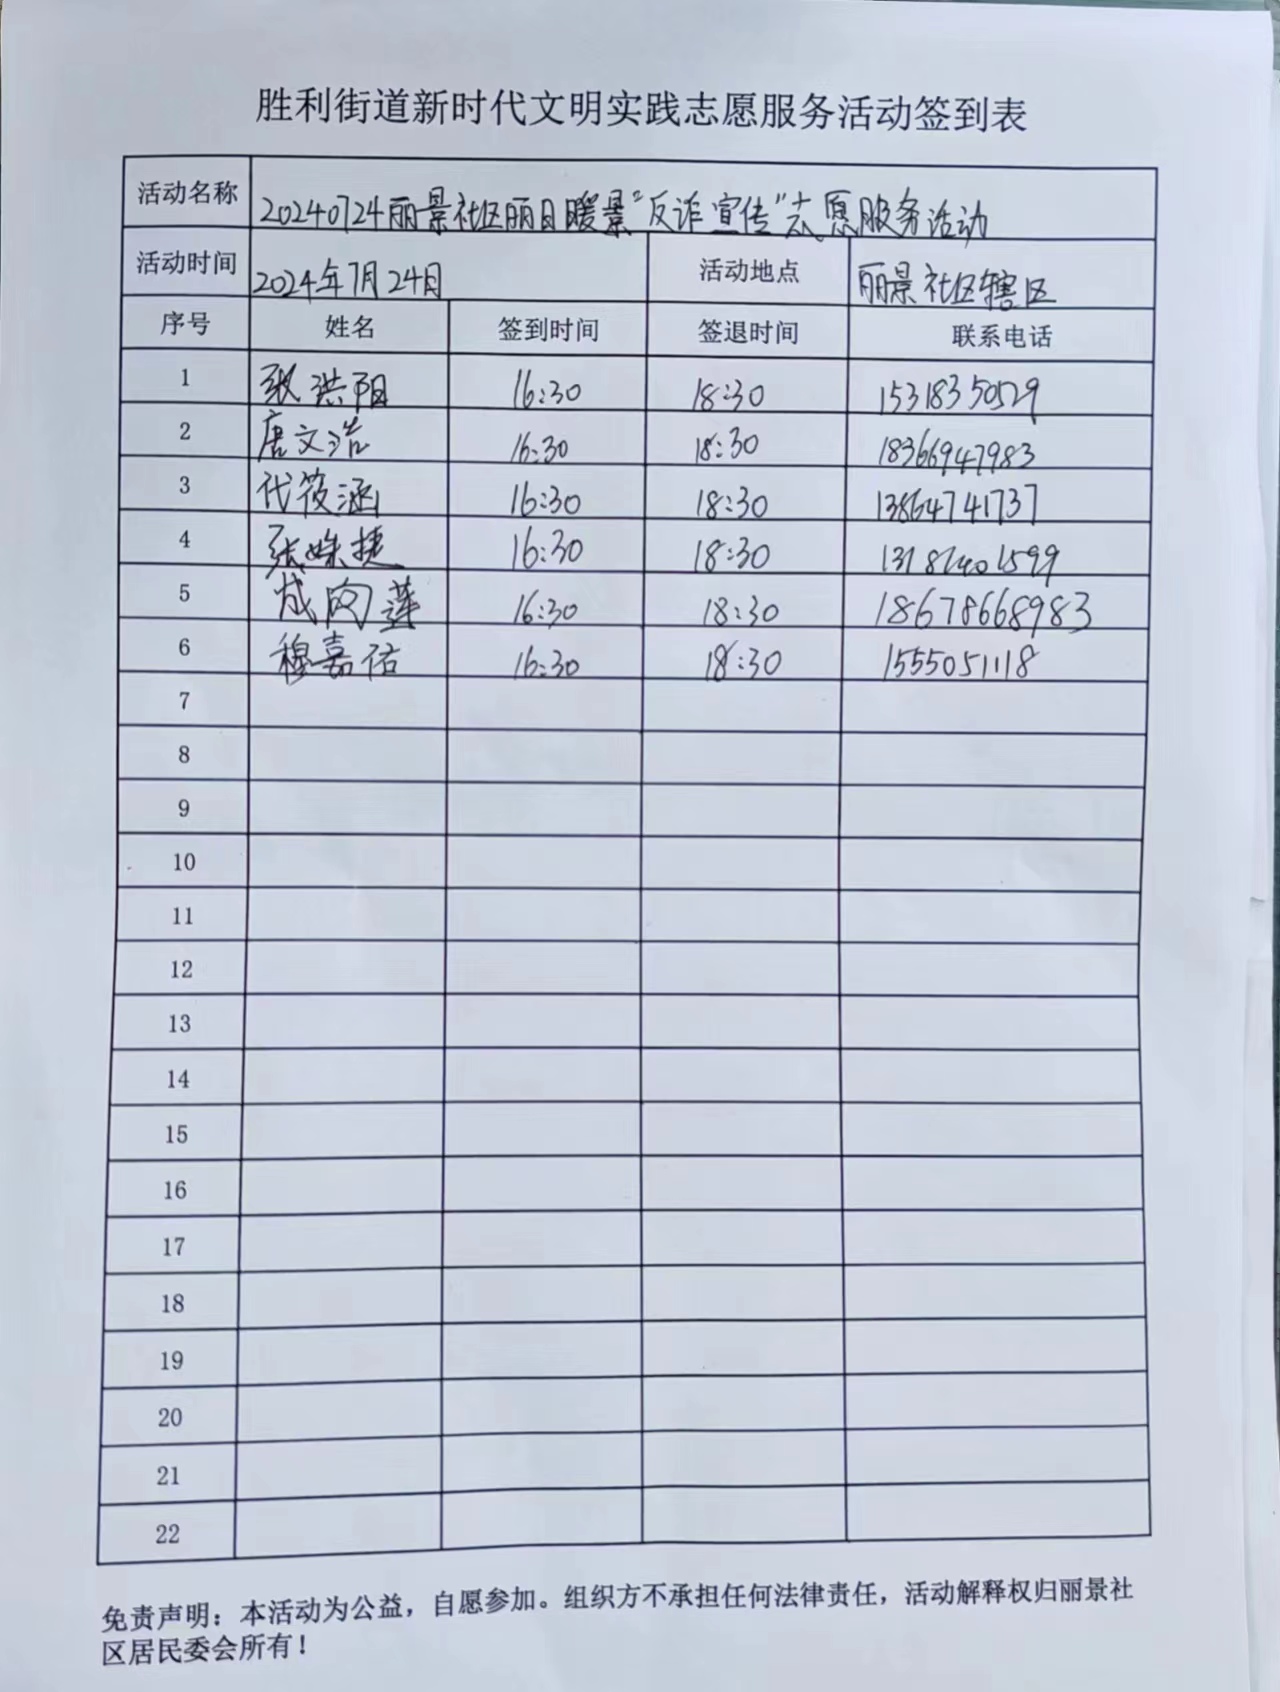 胜利街道新时代文明实践志愿服务活动签到表
活动名称 20240724丽景社区丽日暖景"反诈宣传"志愿服务活动
活动时间 2024年7月24日 活动地点 丽景社区辖区
序号 姓名 签到时间 签退时间 联系电话
1 张洪阳 16:30 18:30 15318350529
2 唐文浩 16:30 18:30 18366947983
3 代筱涵 16:30 18:30 13864741737
4 张姝捷 16:30 18:30
5 16:30 18:30 18678668983
6 穆嘉佑 16:30 18:30 15550511118
7
8
9
10
11
12
13
14
15
16
17
18
19
20
21
22
免责声明：本活动为公益，自愿参加。组织方不承担任何法律责任，活动解释权归丽景社
区居民委会所有！